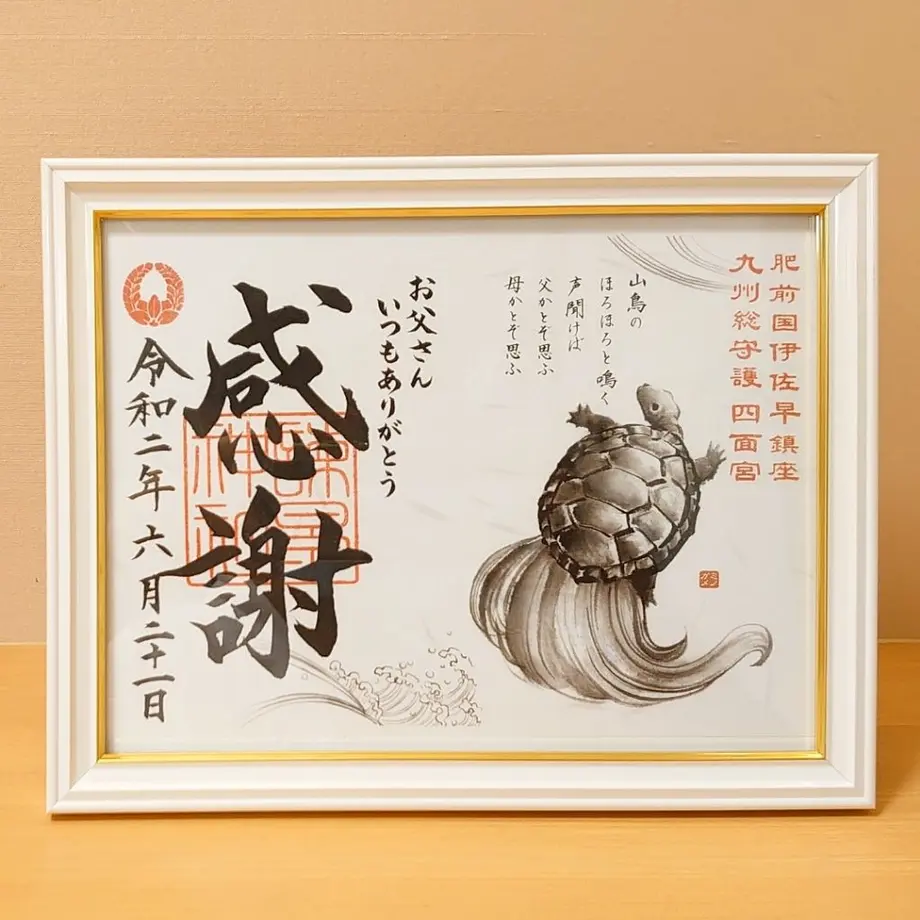 肥前国伊佐早鎮座
九州総守護 四面宮
山鳥の
ほろほろと鳴く
声聞けば
父かとぞ思ふ
母かとぞ思ふ
お父さん
いつもありがとう
感謝
諫早神社
令和二年 六月二十一日